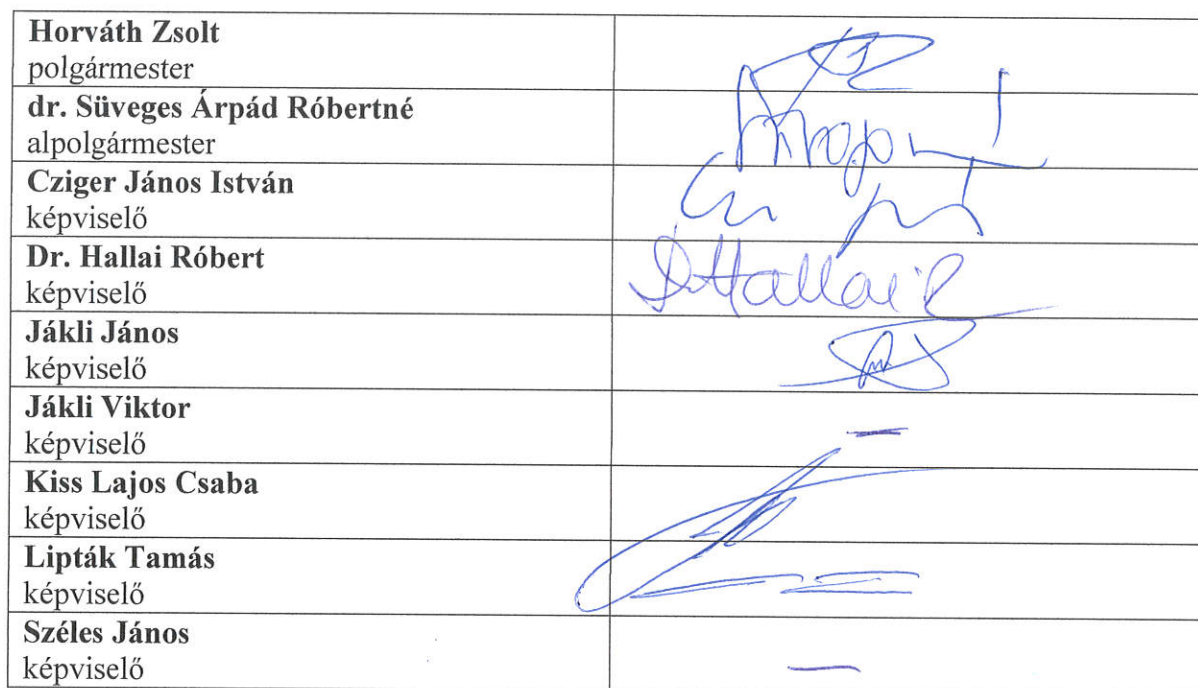 Horváth Zsolt
polgármester
dr. Süveges Árpád Róbertné
alpolgármester
Cziger János István
képviselő
Dr. Hallai Róbert
képviselő
Dr Hallai R
Jákli János
képviselő
Jákli Viktor
képviselő
—
Kiss Lajos Csaba
képviselő
Lipták Tamás
képviselő
Széles János
képviselő
—